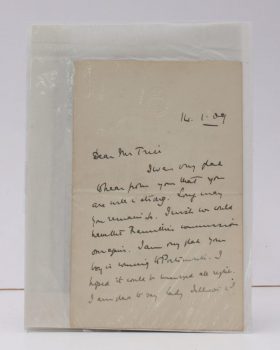 14. 1. 09
Dear Mr Trici
I was very glad
to hear from you that you
are well & strong. Long may
you remain so. I wish we could
have the Ramillies commission
over again. I am very glad your
boy is coming to Portsmouth. I
hoped it could be managed all right.
I am glad to say Lady